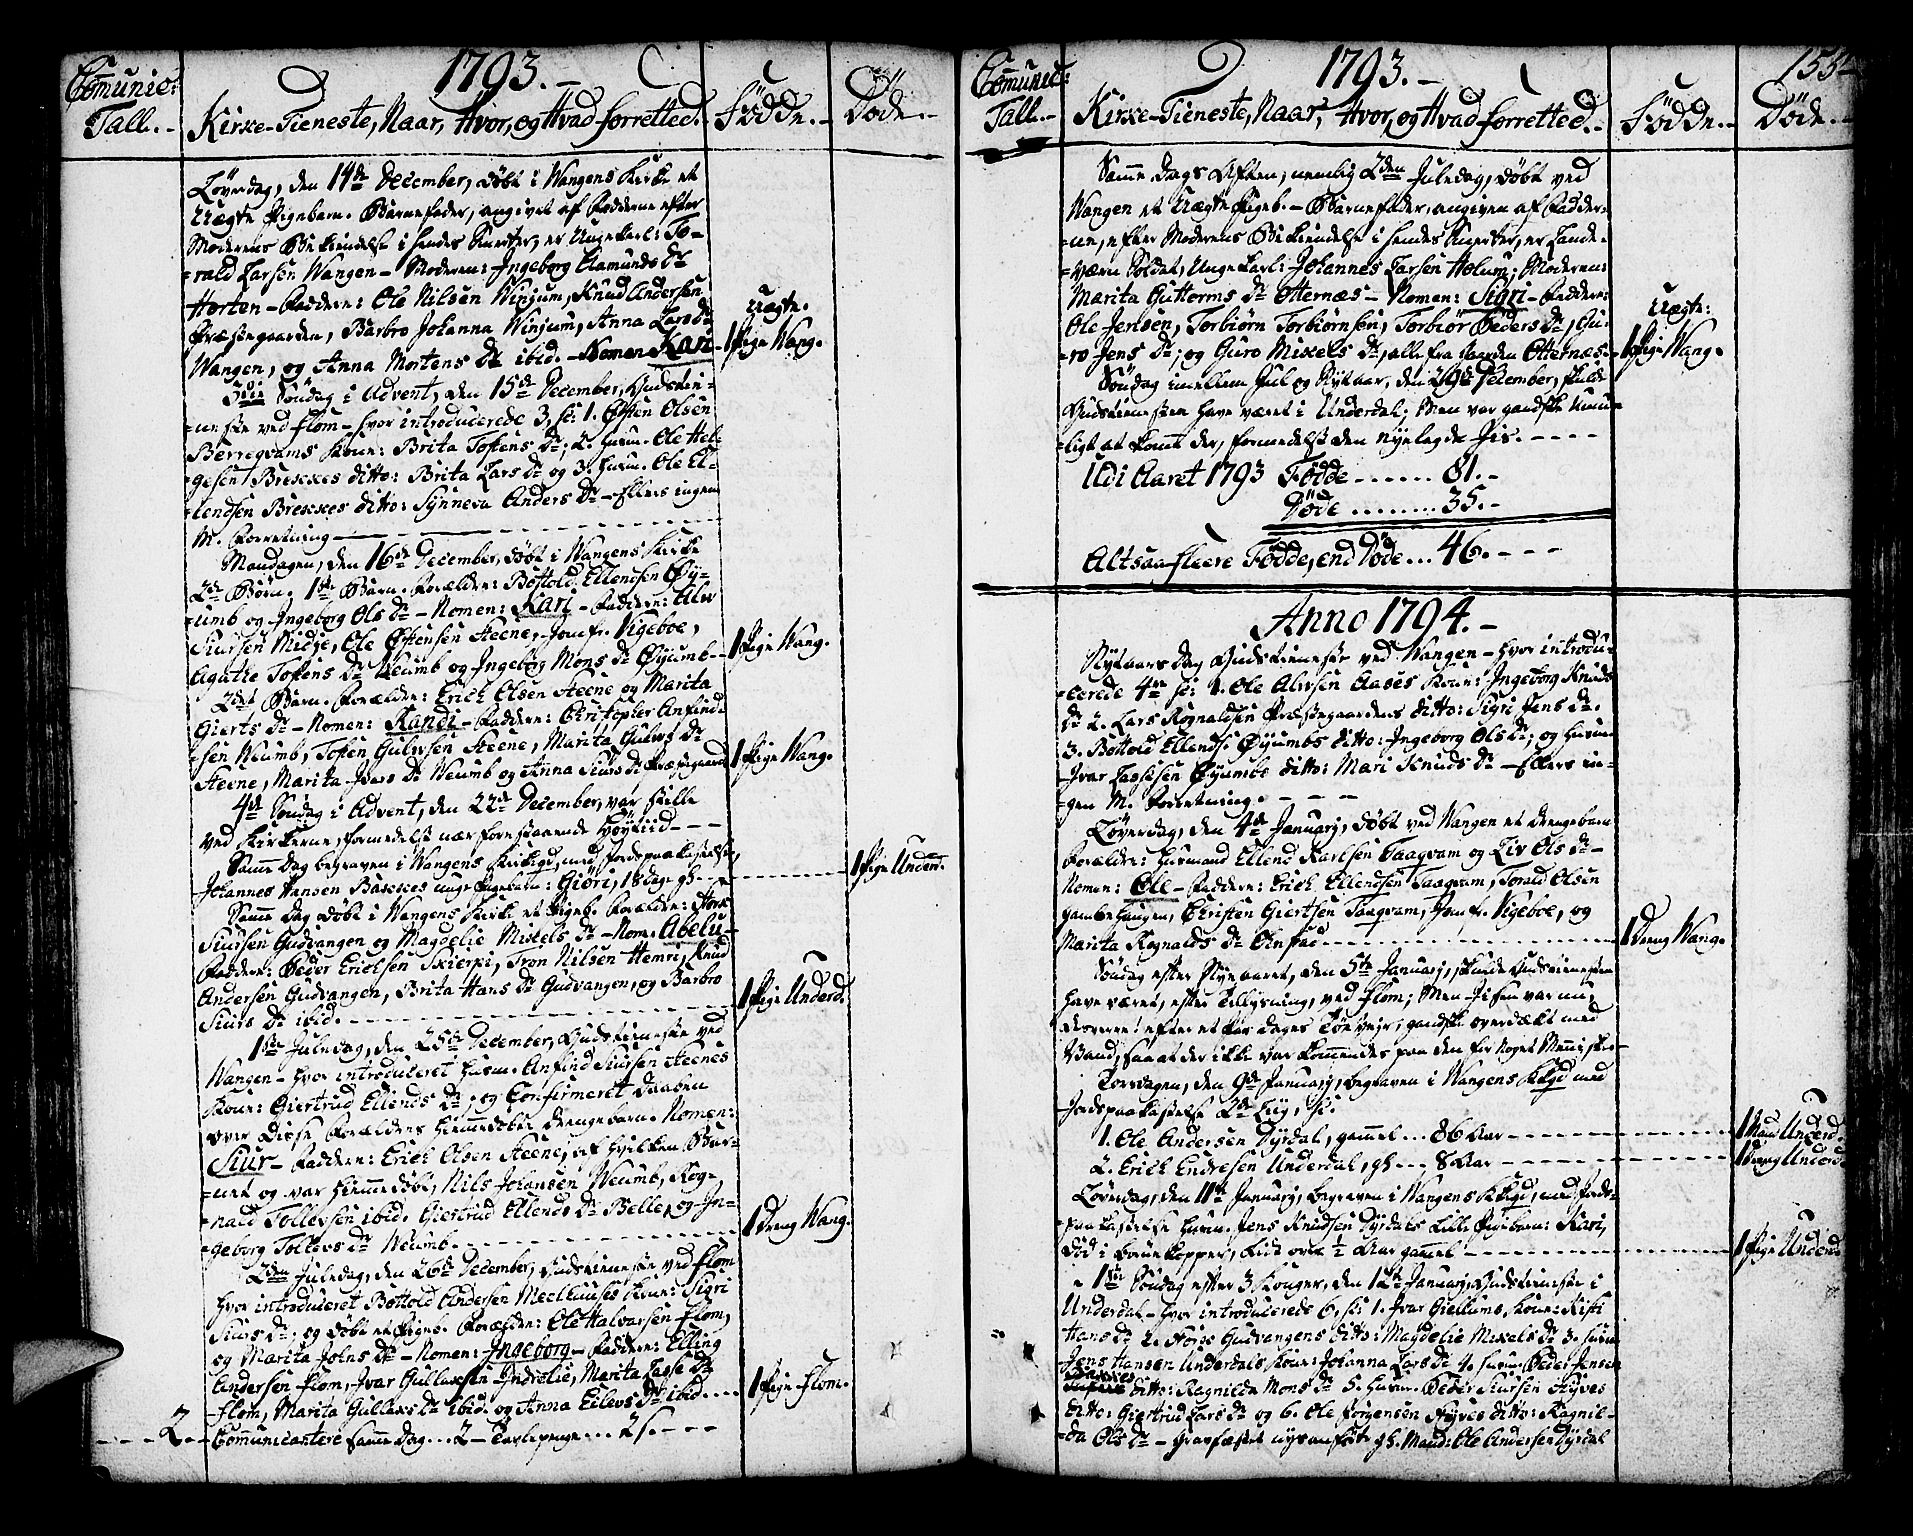 1793.
Comunic:
Tall.
Kirke-Tieneste, Naar, Hvor, og Hvad forretted.
Födde.
Döde.
Löverdag, den 14de December, döbt i Wangens Kirke et
Uægte Pigebarn. Barnefader, angivet af Fadderne efter
Moderens Bekiendelse i hendes Smerter, er Ungekarl: To-
rald Larsen Wangen - Moderen: Ingeborg Aamunds Dr
Horten - Faddere: Ole Nilsen Winjum, Knud Andersen
Præstegaarden, Barbro Johanna Winjum, Anna Lars Dr
Wangen, og Anna Mortens Dr ibid. - Nomen Kari
Uægte.
1 Pige Wang.
3die Söndag i Advent, den 15de December, Gudstie-
neste ved Flom - hvor introducerede 3, sc: 1. Östen Olsen
Berreqvams Kone: Brita Tostens Dr; 2. Husm. Ole Hel-
gesen Brekkes ditto: Brita Lars Dr og 3. Husm. Ole El-
lendsen Brekkes ditto: Synneva Anders Dr - Ellers ingen
M. Forretning
Mandagen, den 16de December, döbt i Wangens Kirke
2de Börn. 1ste Barn. Forældre: Bottold Ellendsen Öy-
umb og Ingeborg Ols Dr - Nomen: Kari - Faddere: Alv
Siursen Midje, Ole Östensen Steene, Jomfr. Vigeboe,
Agathe Tostens Dr Neumb og Ingebörg Mons Dr Öyumb
1 Pige Wang.
2det Barn. Forældre: Erich Olsen Steene og Marita
Gierts Dr - Nomen: Randi - Faddere: Christopher Anfind-
sen Neumb, Tosten Gulvsen Steene, Marita Gulvs Dr
Steene, Marita Ivars Dr Neumb og Anna Siurs Dr Præstegaard
1 Pige Wang.
4de Söndag i Advent, den 22de December, var stille
ved Kirkerne, formedelst nær forestaaende Höytiid
Samme Dag begraven i Wangens Kirkegd, med Jordspaakastelse,
Johannes Hansen Bakkes unge Pigebarn: Giöri, 18 dage gl.
1 Pige Underd.
Samme Dag döbt i Wangens Kirke et Pigeb. Forældre: Störk
Siursen Gudvangen og Magdelie Mikels Dr - Nom. Abelu
Faddere: Peder Erichsen Skierpi, Tron Nilsen Hemri, Knud
Andersen Gudvangen, Brita Hans Dr Gudvangen, og Barbro
Siurs Dr ibid.
1 Pige Underd.
1ste Juledag, den 25de December, Gudstieneste ved
Wangen - hvor introduceret Husm. Anfind Siursen Steenes
Kone: Giertrud Ellends Dr; og Confirmeret Daaben
over Disse Forældres hiemmedöbte Drengebarn. Nomen:
Siur - Faddere: Erich Olsen Steene, af hvilken Bar-
net og var hiemmedöbt, Nils Johansen Neumb, Rog-
nald Tollevsen ibid. Giertrud Ellends Dr Belle, og In-
geborg Tollevs Dr Neumb.
1 Dreng Wang.
2den Juledag, den 26de December, Gudstieneste ved Flom
hvor introduceret Bottold Andersen Melhuuses Kone: Sigri
Siurs Dr; og döbt et Pigeb. Forældre: Ole Halvorsen Flom,
og Marita Johns Dr - Nomen: Ingeborg - Faddere: Elling
Andersen Flom, Ivar Gulleksen Indrelie, Marita Lasse Dr
Flom, Marita Gulleks Dr ibid. og Anna Eilevs Dr ibid.
1 Pige Flom.
2. Communicantere samme Dag... 2 - Tavlepenge... 2 s.
155
1793.
Comunic:
Tall.
Kirke-Tieneste, Naar, Hvor, og Hvad forretted.
Födde.
Döde.
Samme Dags Aften, nemlig 2den Juledag, döbt ved
Wangen et Uægte Pigeb. - Barnefader, angiven af Fadder-
ne, efter Moderens Bekiendelse i hendes Smerter, er Lande-
værn Soldat, Ungekarl: Johannes Larsen Holum; Moderen:
Marita Guttorms Dr Otternæs - Nomen: Sigri - Faddere:
Ole Jensen, Torbiörn Torbiörnsen, Torbiör Peders Dr, Gu-
ro Jens Dr; og Guro Mikels Dr, alle fra Gaarden Otternæs.
Uægte:
1 Pige Wang.
Söndag imellem Jul og Nytaar, den 29de December, skulde
Gudstienesten have været i Underdal; Men var gandske umu-
ligt at komme der, formedelst den nyelagde Jis.
Udi Aaret 1793 Födde....... 81.
Döde....... 35.
Altsaa fleere Födde, end Döde... 46.
Anno 1794.
Nytaars Dag Gudstieneste ved Wangen - hvor introdu-
cerede 4re sc: 1. Ole Alvsen Aases Kone: Ingeborg Knuds
Dr 2. Lars Rognaldsen Præstegaardens ditto: Sigri Jens Dr.
3. Bottold Ellends. Öyumbs ditto: Ingeborg Ols Dr; og Husm.
Ivar Lassesen Öyumbs ditto: Mari Knuds Dr - Ellers in-
gen M. Forretning.
Löverdag, den 4de Januarj, döbt ved Wangen et Drengebarn
Forældre: Husmand Ellend Karlsen Taaqvam og Liv Ols Dr -
Nomen: Ole - Faddere: Erich Ellendsen Taaqvam, Torald Olsen
gamle Haugen, Christen Giertsen Taaqvam, Jomfr. Vigeboe, og
Marita Rognalds Dr Onstad
1 Dreng Wang.
Söndag efter Nye aaret, den 5te Januarj, skulde Gudstienesten
have været, efter Tillysning, ved Flom; Men Jisen var nu,
desverre! efter et Par Dages Töe vejr, gandske overdækt med
Vand, saa at der ikke var kommendes paa den for noget Menniske
Torsdagen, den 9de Januarj, begraven i Wangens Kkgd med
Jordspaakastelse 2de Liig, sc:
1. Ole Andersen Dyrdal, gammel... 86 Aar
1 Mand Underd.
2. Erich Endresen Underdal, gl... 8 Aar
1 Dreng Underd.
Löverdag, den 11te Januarj, begraven i Wangens Kkgd, med Jords-
paakastelse Husm. Jens Knudsen Dyrdals lille Pigebarn: Kari,
död i Bornekopper, lidt over ½ Aar gammel
1 Pige Underd.
1ste Söndag efter 3 Konger, den 12te Januarj, Gudstieneste i
Underdal - hvor introducerede 6, sc: 1. Ivar Giellums, Kone: Kisti
Hans Dr 2. Störk Gudvangens ditto: Magdelie Mikels Dr 3. Husm.
Jens Hansen Underdals Kone: Johanna Lars Dr 4. Husm. Peder Jensen
Bakkes ditto: Ragnilda Mons Dr 5. Husm. Peder Siursen Styves
ditto: Giertrud Lars Dr og 6. Ole Jörgensen Styves ditto: Ragnil-
da Ols Dr - Gravfæstet nys anförte gl. Mand: Ole Andersen Dyrdal